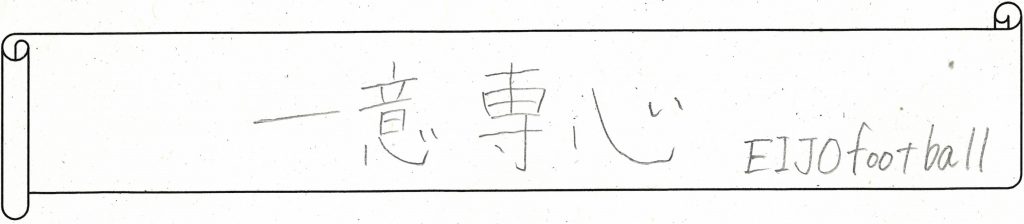 一意専心
EIJOfootball